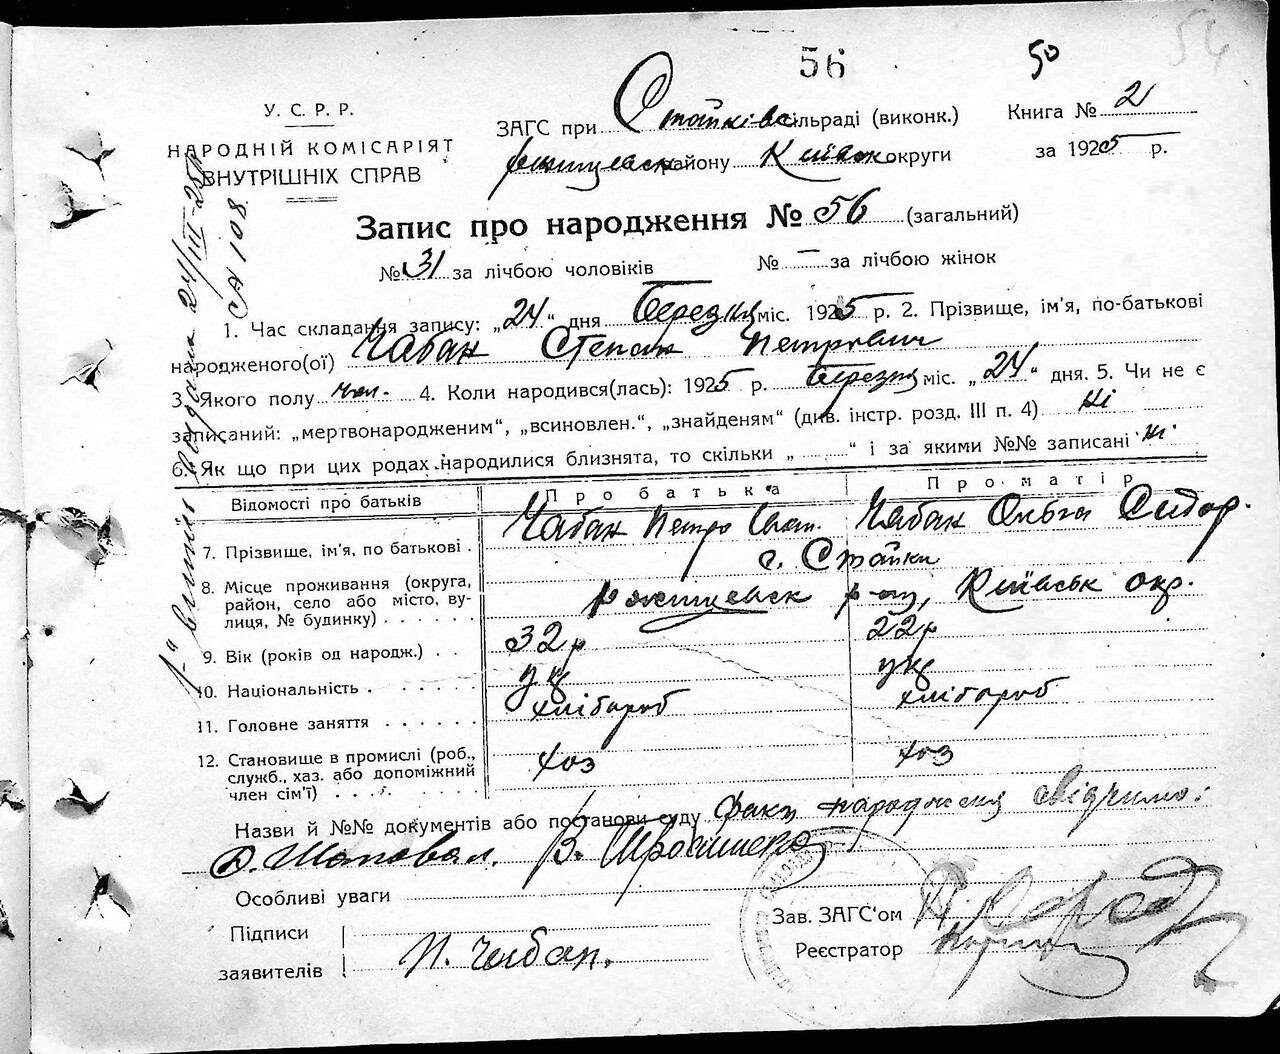 54
56 50
У. С. Р. Р.
НАРОДНІЙ КОМІСАРІЯТ
ВНУТРІШНІХ СПРАВ
ЗАГС при Стайківс. сільраді (виконк.)
району Київськ округи
Книга № 2
за 1925 р.
Запис про народження № 56 (загальний)
№ 31 за лічбою чоловіків № – за лічбою жінок
1. Час складання запису: „24“ дня березня міс. 1925 р. 2. Прізвище, ім'я, по-батькові
народженого(ої) Чабан Степан Петрович
3. Якого полу чол. 4. Коли народився(лась): 1925 р. березня міс. „24“ дня. 5. Чи не є
записаний: „мертвонародженим“, „всиновлен.“, „знайденям“ (див. інстр. розд. III п. 4) ні
6. Як що при цих родах народилися близнята, то скільки „ “ і за якими №№ записані ні
Відомості про батьків Про батька Про матір
7. Прізвище, ім'я, по батькові . Чабан Петро Чабан Ольга Сидор.
с. Стайки
8. Місце проживання (округа,
район, село або місто, ву-
лиця, № будинку) . . . . . . р-ну, Київськ окр.
9. Вік (років од народж.) . . 32 р 22 р
10. Національність . . . . . . . укр укр
11. Головне заняття . . . . . . хлібороб хлібороб
12. Становище в промислі (роб.,
служб., хаз. або допоміжний
член сім'ї) . . . . . . . хоз хоз
Назви й №№ документів або постанови суду факт народження свідчимо:
Д. Шаповал.
Особливі уваги
Підписи
заявителів П. Чабан.
Зав. ЗАГС'ом
Реєстратор
видана 24/III-25 р
СА 108